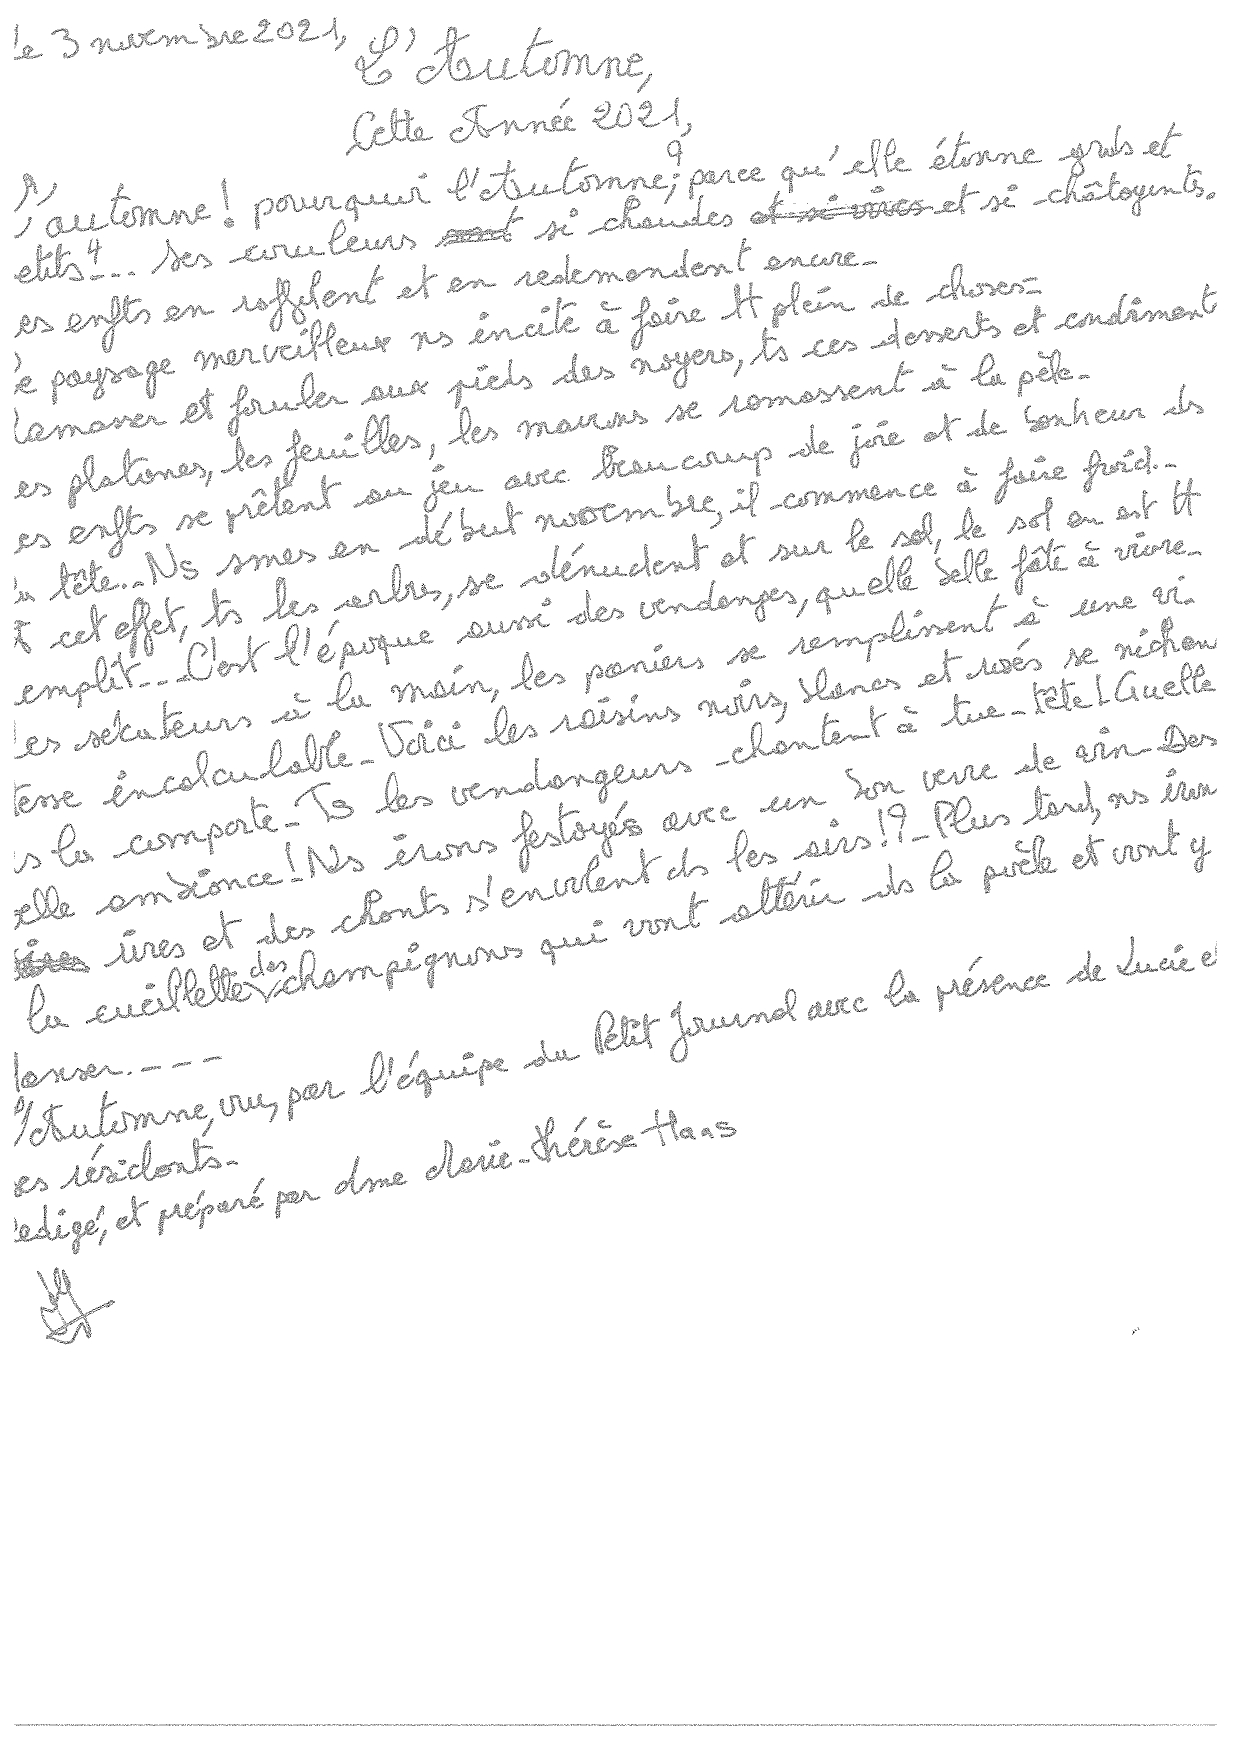 le 3 novembre 2021,
L'Automne,
Cette Année 2021,
L'automne! pourquoi l'Automne,? parce qu'elle étonne grds et
etits!... Ses couleurs si chaudes et si châtoyents.
es enfts en raffolent et en redemandent encore-
e paysage merveilleux ns incite à faire tt plein de choses-
amasser et fouler aux pieds des noyers, ts ces desserts et condiment
es platanes, les feuilles, les marrons se ramassent à la pèle-
es enfts se prêtent au jeu avec beaucoup de joie et de bonheur ds
tête... Ns smes en début novembre, il commence à faire froid.-
cet effet, ts les arbres, se dénudent et sur le sol, le sol en est tt
emplit... C'est l'époque aussi des vendanges, quelle belle fête à vivre-
es sékateurs à la main, les paniers se remplissent à une vi-
tesse incalculable- Voici les raisins noirs, blancs et rosés se nichon
s la comporte- Ts les vendangeurs chantent à tue-tête! Quelle
elle ambiance! Ns irons festoyés avec un bon verre de vin- Des
rires et des chants s'envolent ds les airs!?- Plus tard, ns iron
la cueillette des champignons qui vont attérir ds la poêle et vont y
danser.---
l'Automne, vu, par l'équipe du Petit Journal avec la présence de Lucie e
es résidents-
edigé, et préparé par Mme Marie-Thérèse Haas